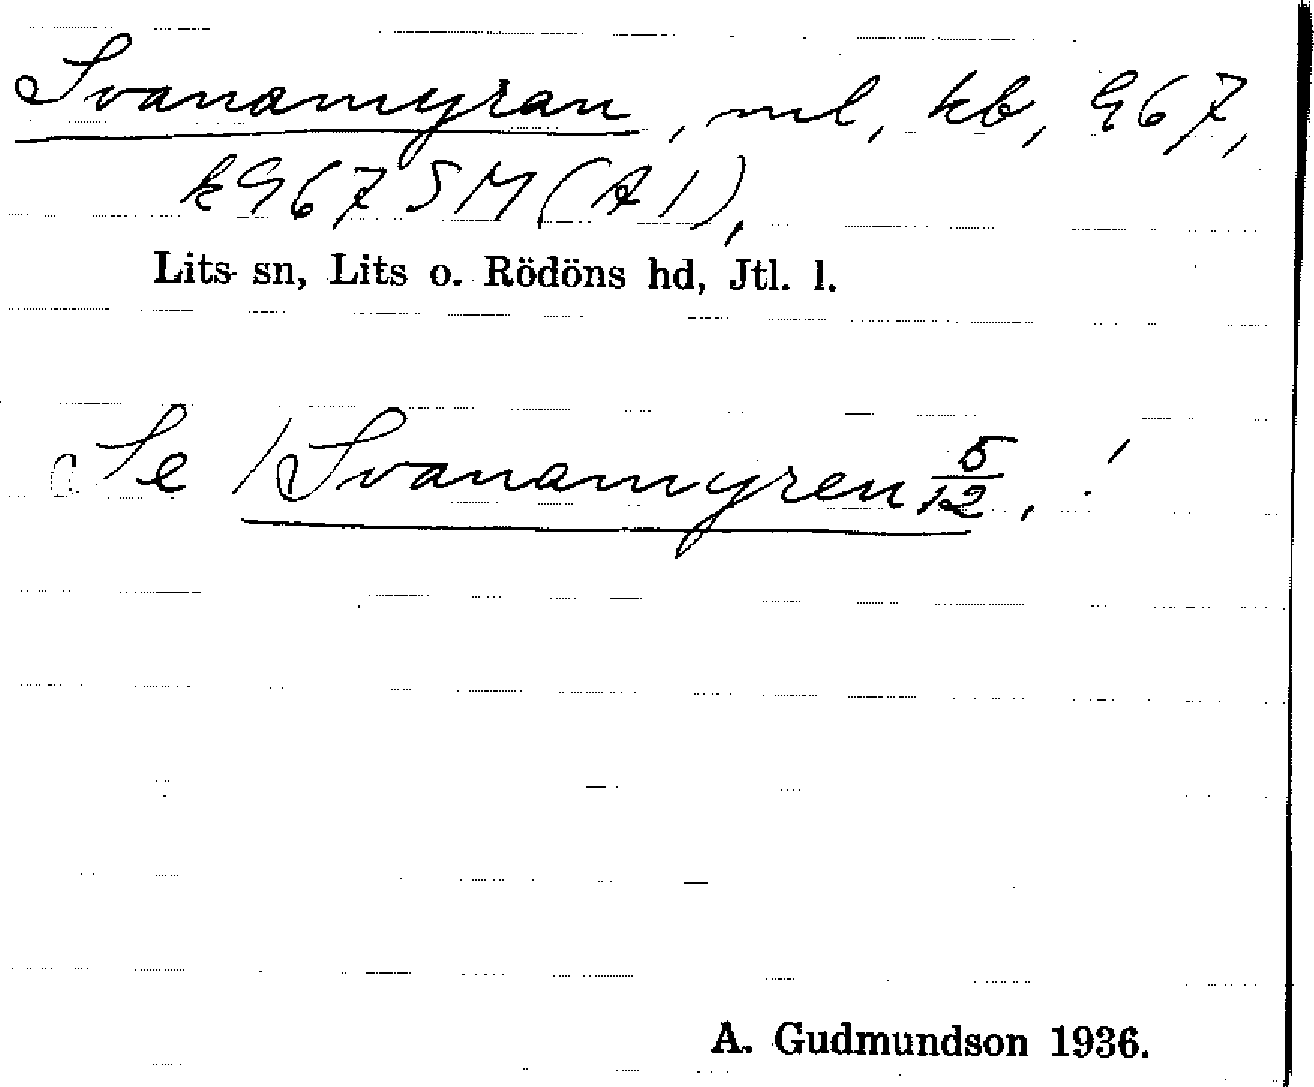 Svanamyran, ml, kb, G67,
kG67SM(A1),
Lits sn, Lits o. Rödöns hd, Jtl. l.
Se 1 Svanamyren 5/12,
A. Gudmundson 1936.